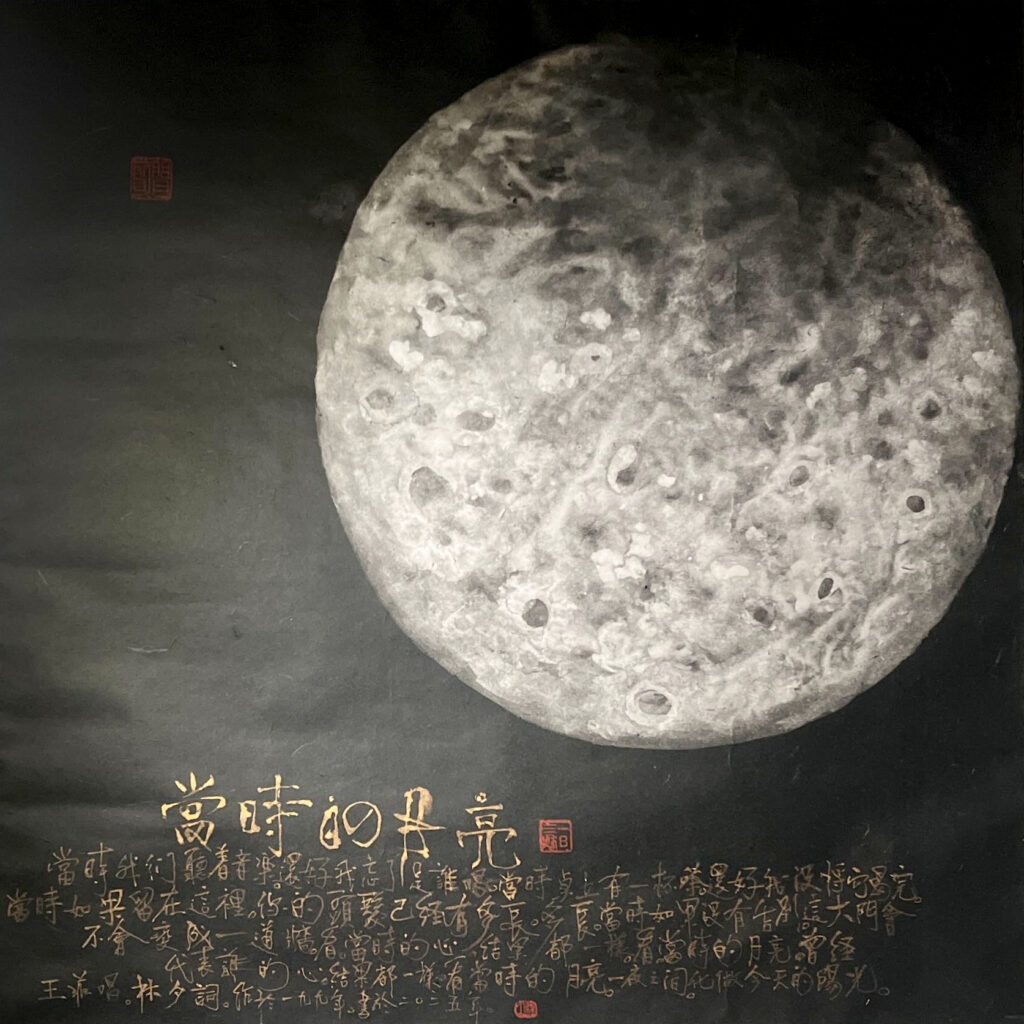 當時的月亮
當時我们聽着音樂。還好我忘了是誰唱。當時桌上有一杯茶還好我沒將它喝完。
當時如果留在這裡。你的頭髮已經有多長。多長。當時如果沒有告別。這大門會
不會變成一道牆。看當時的心。結果都一樣。看當時的月亮。曾经
代表誰的心。結果都一樣。看當時的月亮。一夜之间化做今天的陽光。
王菲唱。林夕詞。作於一九九年。書於二〇二五年。